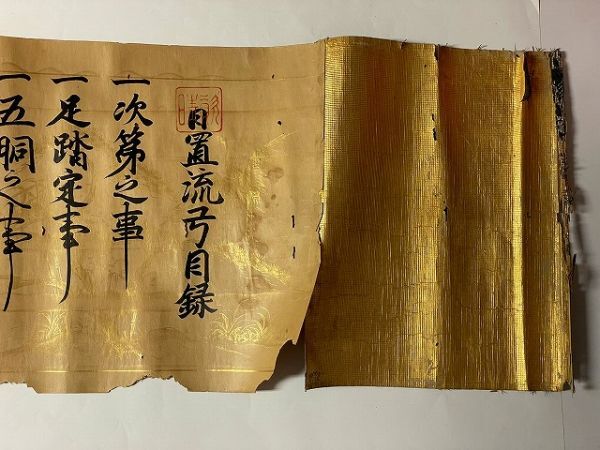 日置流弓目録
一次第之事
一足踏定事
一五胴之事